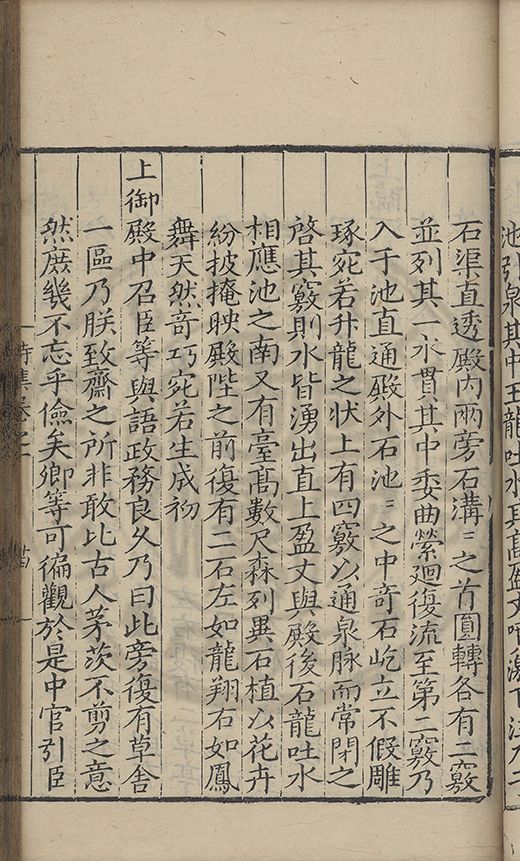 池引泉其中玉龍吐水其高盈丈
石渠直透殿内兩旁石溝〻之首圓轉各有二竅
並列其一水貫其中委曲縈廻復流至第二竅乃
入于池直通殿外石池〻之中竒石屹立不假雕
琢宛若升龍之狀上有四竅以通泉脉而常閉之
啓其竅則水皆湧出直上盈丈與殿後石龍吐水
相應池之南又有臺髙數尺森列異石植以花卉
紛披掩映殿陛之前復有二石左如龍翔右如鳳
舞天然竒巧宛若生成初
上御殿中召臣等與語政務良久乃曰此旁復有草舍
一區乃朕致齋之所非敢比古人茅茨不剪之意
然庶幾不忘乎儉矣卿等可徧觀於是中官引臣